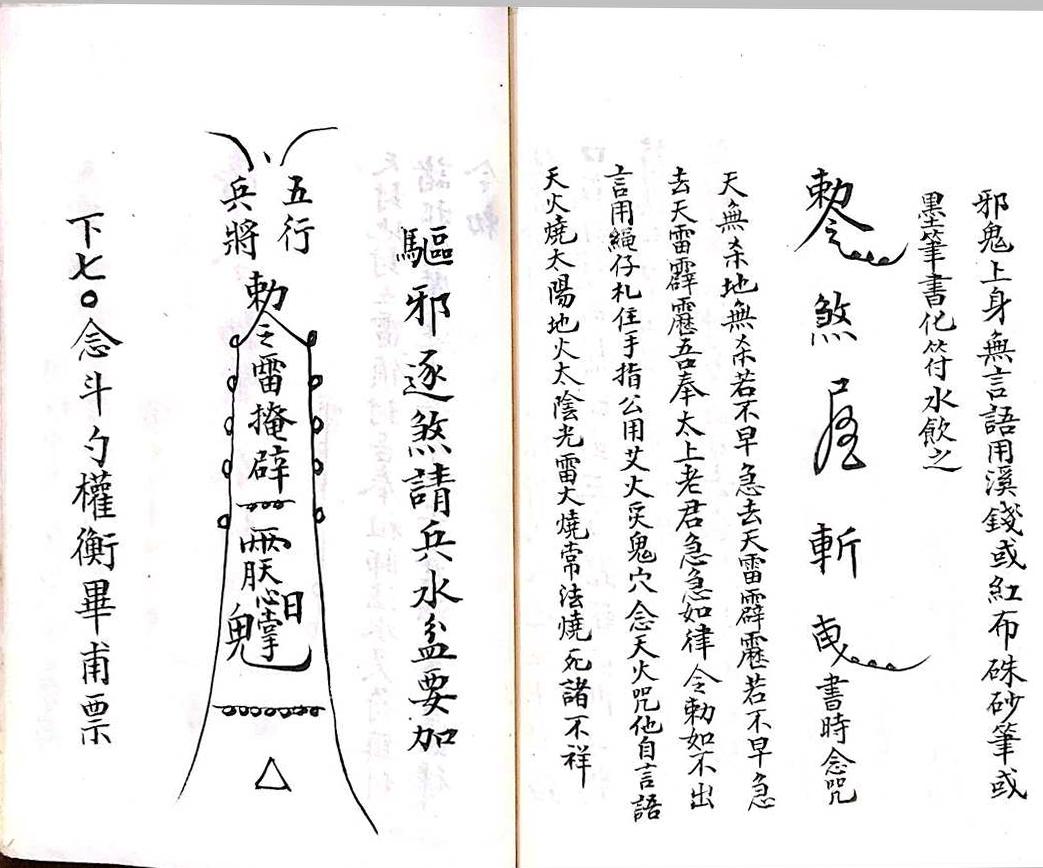 邪鬼上身無言語用溪錢或紅布硃砂筆或
墨筆書化符水飲之
勅令煞斬書時念咒
天無杀地無杀若不早急去天雷霹靂若不早急
去天雷霹靂吾奉太上老君急急如律令勅如不出
言用繩仔札住手指公用艾火炙鬼穴念天火咒他自言語
天火燒太陽地火太陰光雷大燒常法燒死諸不祥
驅邪逐煞請兵水盆要加
五行
兵將
勅令雷掩辟
鬼
日
下七〇念斗勺權衡畢甫票